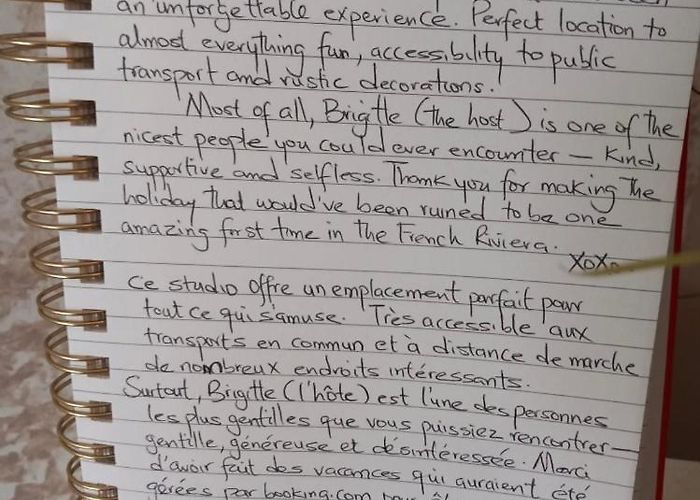 an unforgettable experience. Perfect location to
almost everything fun, accessibility to public
transport and rustic decorations.
Most of all, Brigitte (the host) is one of the
nicest people you could ever encounter — Kind,
supportive and selfless. Thank you for making the
holiday that would've been ruined to be one
amazing first time in the French Riviera.
XoXo
Ce studio offre un emplacement parfait pour
tout ce qui s'amuse. Très accessible aux
transports en commun et à distance de marche
de nombreux endroits intéressants.
Surtout, Brigitte (l'hôte) est l'une des personnes
les plus gentilles que vous puissiez rencontrer —
gentille, généreuse et désintéressée. Merci
d'avoir fait des vacances qui auraient été
gérées par booking.com